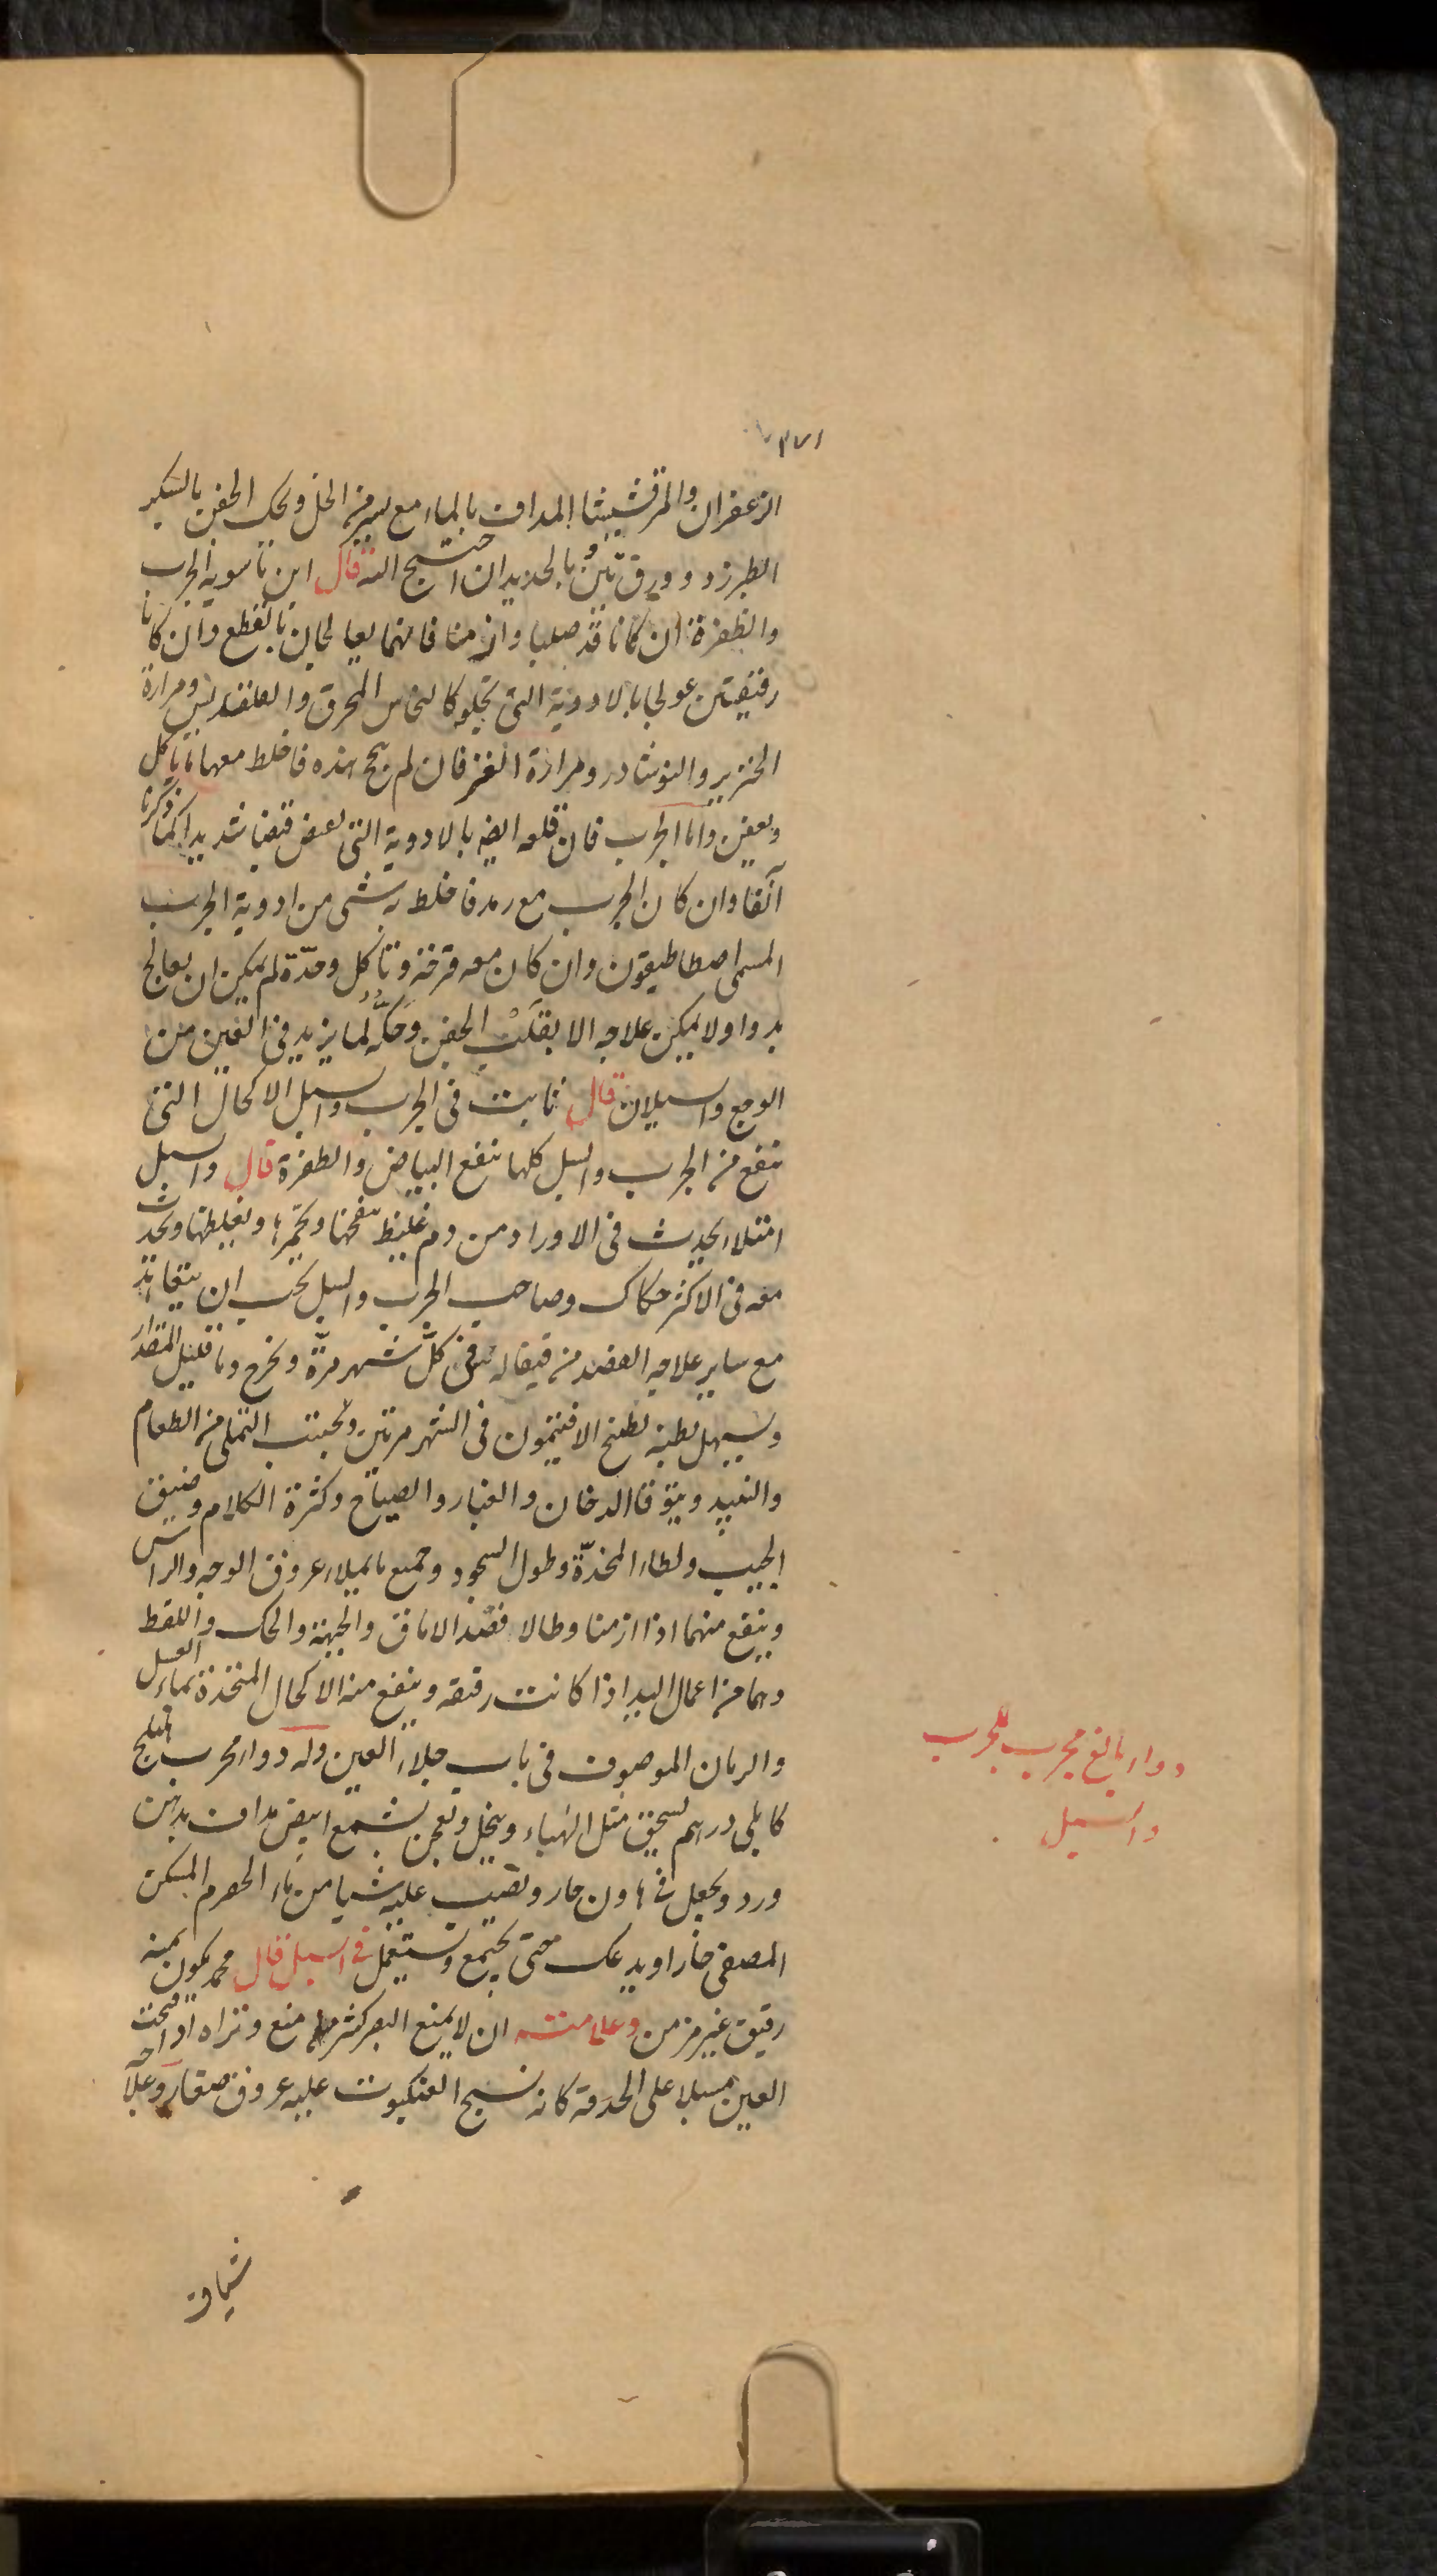 الزعفران والمرقشيثا المداف بالماء مع يسير من الخل ويحك الجفن بالسكر
الطبرزد وورق تين وبالحديد ان احتيج اليه قال ابن ماسويه الجرب
والظفرة ان كانا قد صلبا وازمنا فانهما يعالجان بالقطع وان كانا
رقيقين عولجا بالادوية التي تجلو كالنحاس المحرق والقلقديس ومرارة
الخنزير والنوشادر ومرارة العنز فان لم ينجح هذه فاخلط معها ما ياكل
ويعفن واما الجرب فان قلعه ايضا بالادوية التي تعفن قبضا شديدا كما ذكرنا
آنفا وان كان الجرب مع رمد فاخلط به شي من ادوية الجرب
المسمى اصطاطيقون وان كان معه قرحة وتأكل وحدّة لم يمكن ان يعالج
بدواء ولا يمكن علاجه الا بقلب الجفن وحكّه لما يزيد في العين من
الوجع والسيلان قال ثابت في الجرب والسبل الاكحال التي
تنفع من الجرب والسبل كلها تنفع البياض والظفرة قال والسبل
امتلاء يحدث في الاوراد من دم غليظ ينفخها ويحمّرها ويغلظها ويحدث
معه في الاكثر حكاك وصاحب الجرب والسبل يجب ان يتعاهد
مع ساير علاجه الفصد من قيفاله في كلّ شهر مرّة ويخرج دما قليل المقدار
ويسهل بطنه بطبيخ الافيتمون في الشهر مرتين ويجتنب التملي من الطعام
والنبيذ ويتوقا الدخان والغبار والصياح وكثرة الكلام وضيق
الجيب ولطاء المخدّة وطول السجود وجميع ما يملاء عروق الوجه والراس
وينفع منهما اذا ازمنا وطالا فصد الاماق والجبهة والحك واللقط
وهما من اعمال اليد اذا كانت رقيقه وينفع منه الاكحال المتخذة بماء العسل
والرمان الموصوف في باب جلاء العين وله دواء مجرب هليلج
كابلي درهم يسحق مثل الهباء وينخل ويعجن بشمع ابيض مداف بدهن
ورد ويجعل في هاون حار ويصب عليه شيا من ماء الحصرم المسكن
المصفى حارا ويدعك حتى يجتمع ويستعمل في السبل قال محمد يكون منه
رقيق غير مزمن وعلامته ان لا يمنع البصر كثير منع وتراه اذا فتحت
العين مسبلا على الحدقة كانه نسج العنكبوت عليه عروق صغار وعلاجه
شياف
دواء بالغ مجرب للجرب
والسبل